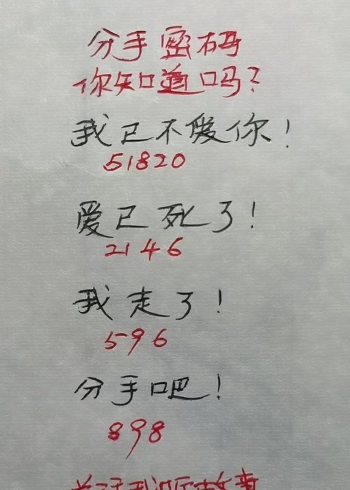 分手密码
你知道吗?
我已不爱你!
51820
爱已死了!
2146
我走了!
596
分手吧!
898